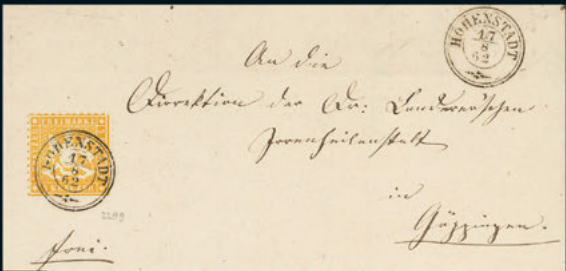 HOHENSTADT
17
8
62
An die
Direktion der Dr: Landerer'schen
Irrenheilanstalt
in
Göppingen.
HOHENSTADT
17
8
62
2299
frei.